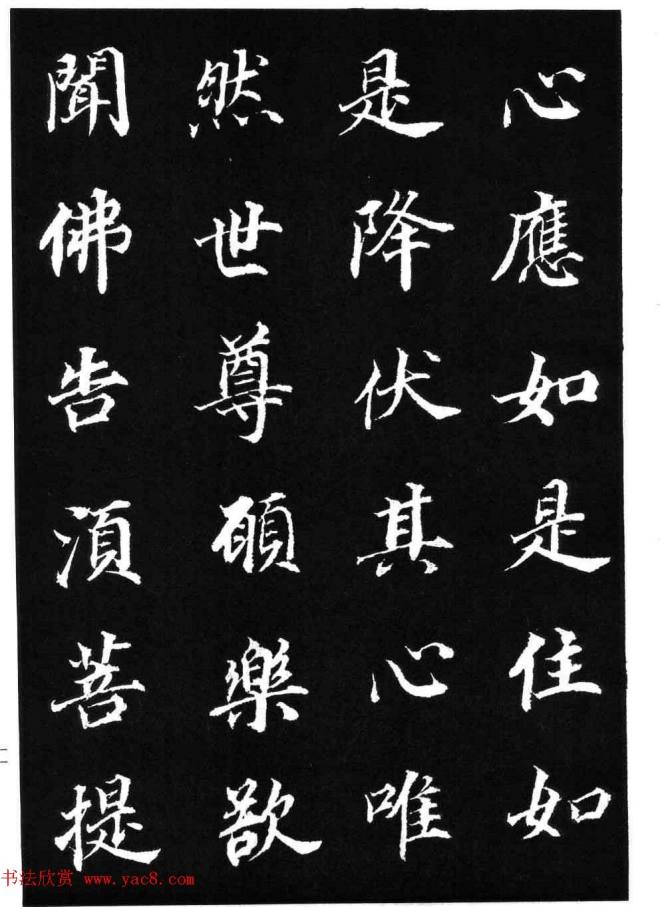 心應如是住如
是降伏其心唯
然世尊願樂欲
聞佛告湏菩提
二
书法欣赏 www.yac8.com